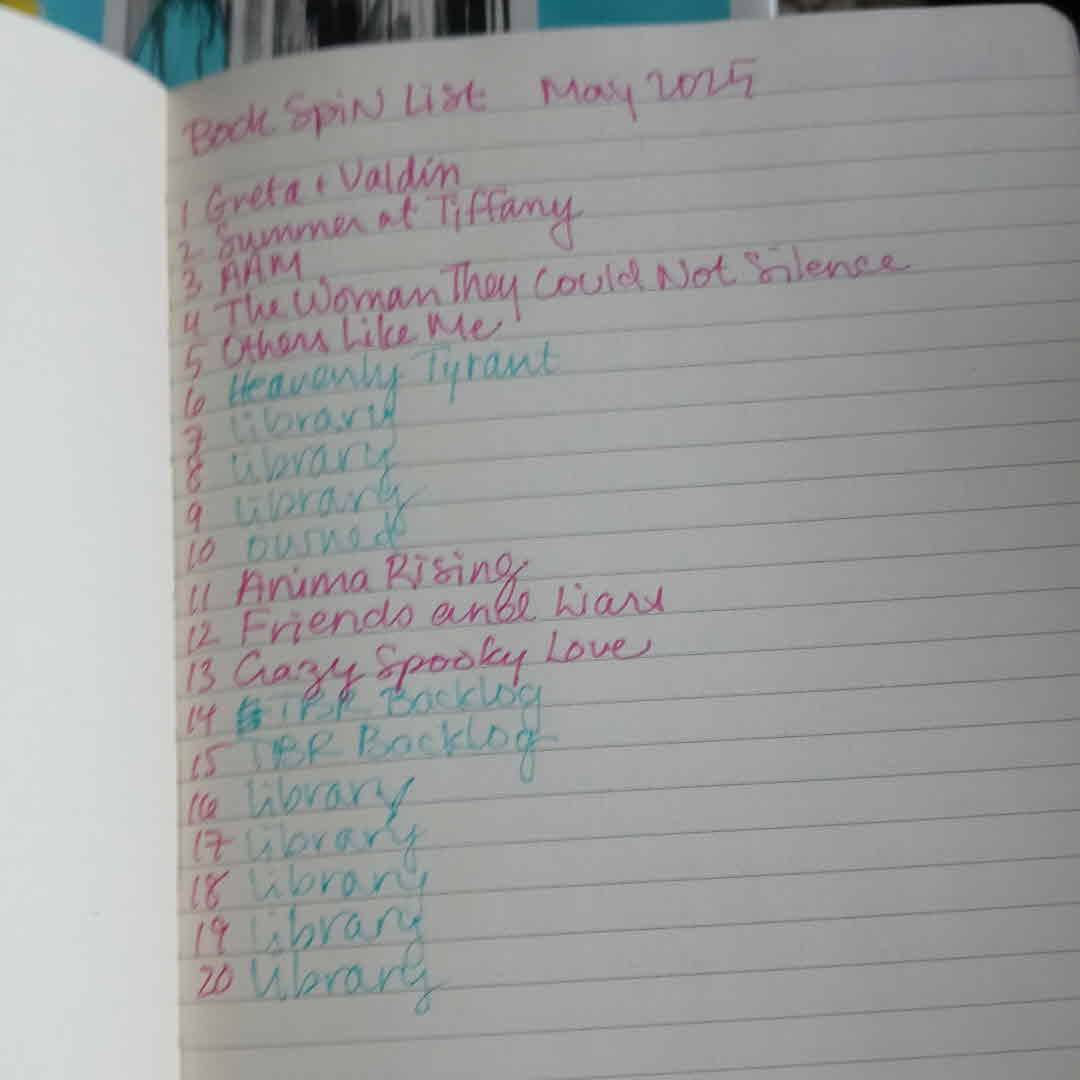 Book Spin List May 2025
1 Greta + Valdin
2 Summer at Tiffany
3 AAM
4 The Woman They Could Not Silence
5 Others Like Me
6 Heavenly Tyrant
7 Library
8 Library
9 Library
10 owned
11 Anima Rising
12 Friends and Liars
13 Crazy Spooky Love
14 TBR Backlog
15 TBR Backlog
16 Library
17 Library
18 Library
19 Library
20 Library